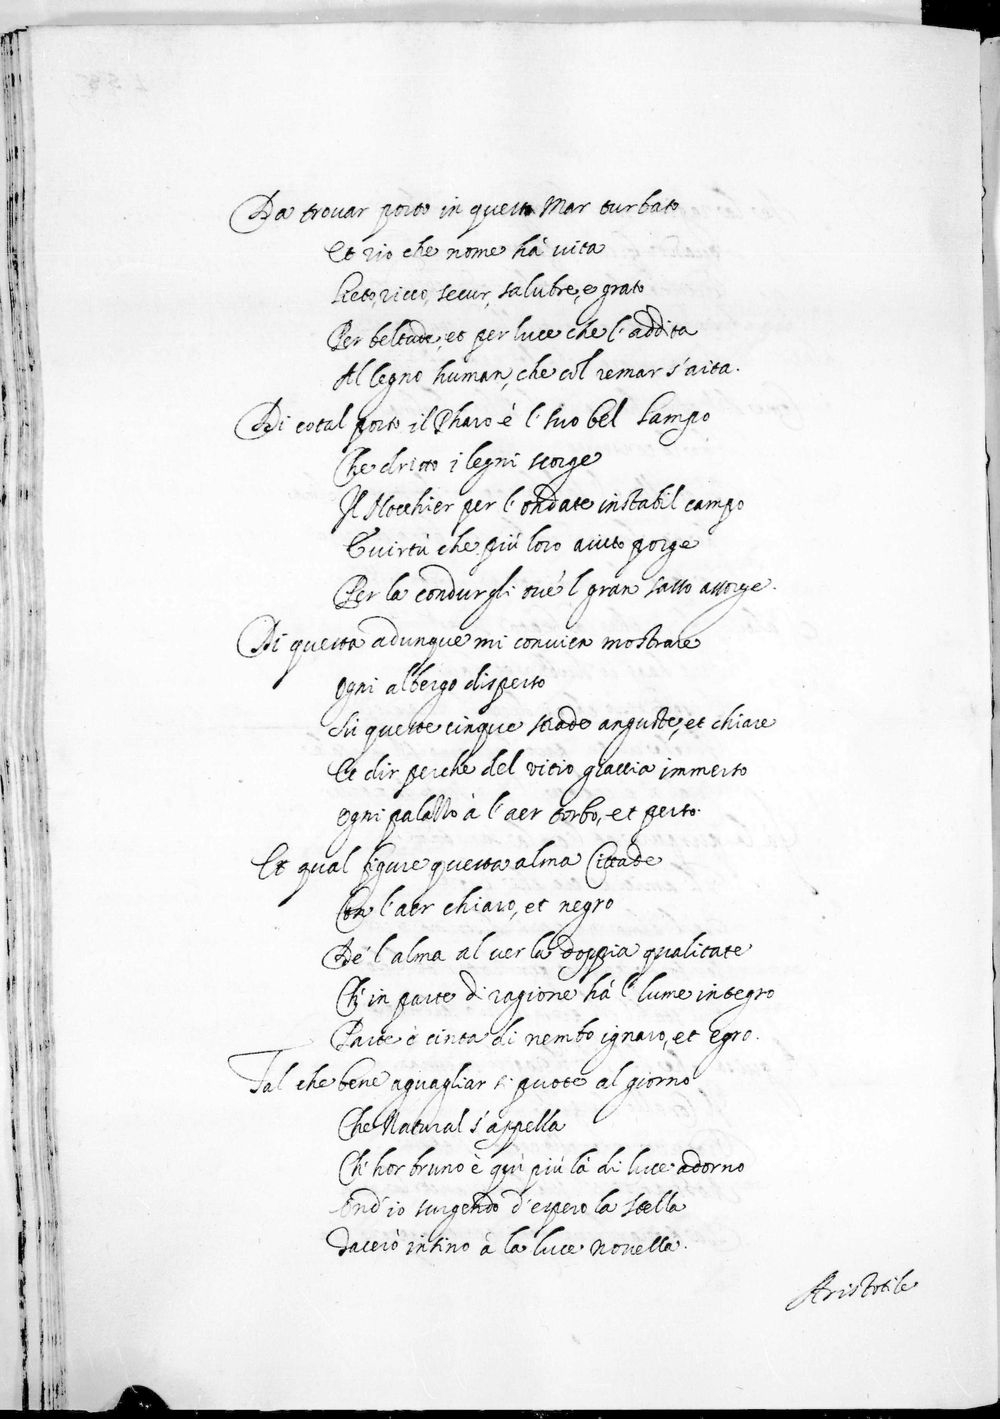 Da trovar porto in questo Mar turbato
Et rio che nome hà vita
Lieto, ricco, secur, salubre, e grato
Per beltade, et per luce che l'addita
Al legno human, che col remar s'aita.
Di cotal porto il Pharo è l' suo bel lampo
Che dritto i legni scorge
Il Nocchier per l'ondate instabil campo
E virtù che più loro aiuto porge
Per la condurgli ove 'l gran sasso assorge.
Di questa adunque mi convien mostrare
Ogni albergo disperso
Sù queste cinque strade anguste, et chiare
Et dir perche del vitio giaccia immerso
Ogni palazzo à l'aer torbo, et perso.
Et qual figure questa alma Cittade
Con l'aer chiaro, et negro
De l'alma al ver la doppia qualitate
Ch' in parte di ragione hà l' lume integro
Parte è cinta di nembo ignaro, et egro.
Tal che bene aguagliar si puote al giorno
Che Natural s'appella
Ch' hor bruno è qui più là di luce adorno
Ond' io surgendo d'espero la stella
Tacerò insino à la luce novella.
Aristotile